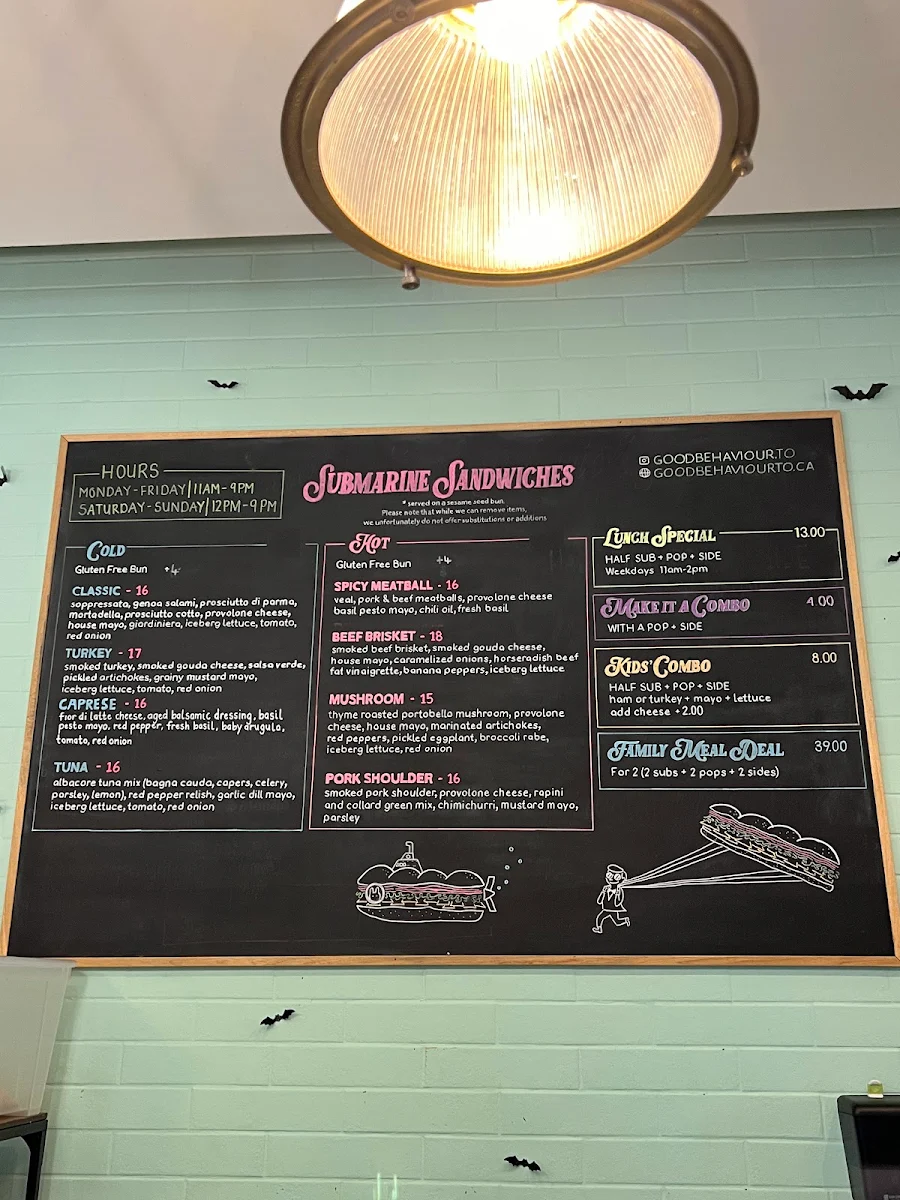 HOURS
MONDAY-FRIDAY|11AM-9PM
SATURDAY-SUNDAY|12PM-9PM
SUBMARINE SANDWICHES
* served on a sesame seed bun.
Please note that while we can remove items,
we unfortunately do not offer substitutions or additions
GOODBEHAVIOUR.TO
GOODBEHAVIOURTO.CA
COLD
Gluten Free Bun +4
CLASSIC - 16
soppressata, genoa salami, prosciutto di parma,
mortadella, prosciutto cotto, provolone cheese,
house mayo, giardiniera, iceberg lettuce, tomato,
red onion
TURKEY - 17
smoked turkey, smoked gouda cheese, salsa verde,
pickled artichokes, grainy mustard mayo,
iceberg lettuce, tomato, red onion
CAPRESE - 16
fior di latte cheese, aged balsamic dressing, basil
pesto mayo, red pepper, fresh basil, baby arugula,
tomato, red onion
TUNA - 16
albacore tuna mix (bagna cauda, capers, celery,
parsley, lemon), red pepper relish, garlic dill mayo,
iceberg lettuce, tomato, red onion
HOT
Gluten Free Bun +4
SPICY MEATBALL - 16
veal, pork & beef meatballs, provolone cheese
basil pesto mayo, chili oil, fresh basil
BEEF BRISKET - 18
smoked beef brisket, smoked gouda cheese,
house mayo, caramelized onions, horseradish beef
fat vinaigrette, banana peppers, iceberg lettuce
MUSHROOM - 15
thyme roasted portobello mushroom, provolone
cheese, house mayo, marinated artichokes,
red peppers, pickled eggplant, broccoli rabe,
iceberg lettuce, red onion
PORK SHOULDER - 16
smoked pork shoulder, provolone cheese, rapini
and collard green mix, chimichurri, mustard mayo,
parsley
LUNCH SPECIAL 13.00
HALF SUB + POP + SIDE
Weekdays 11am-2pm
MAKE IT A COMBO 4.00
WITH A POP + SIDE
KIDS' COMBO 8.00
HALF SUB + POP + SIDE
ham or turkey + mayo + lettuce
add cheese +2.00
FAMILY MEAL DEAL 39.00
For 2 (2 subs + 2 pops + 2 sides)